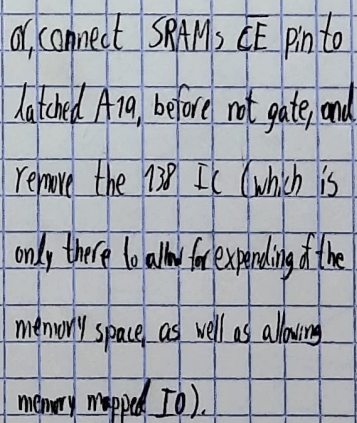 or, connect SRAMs CE pin to
latched A19, before not gate, and
remove the 138 IC (which is
only there to allow for expending of the
memory space, as well as allowing
memory mapped IO).